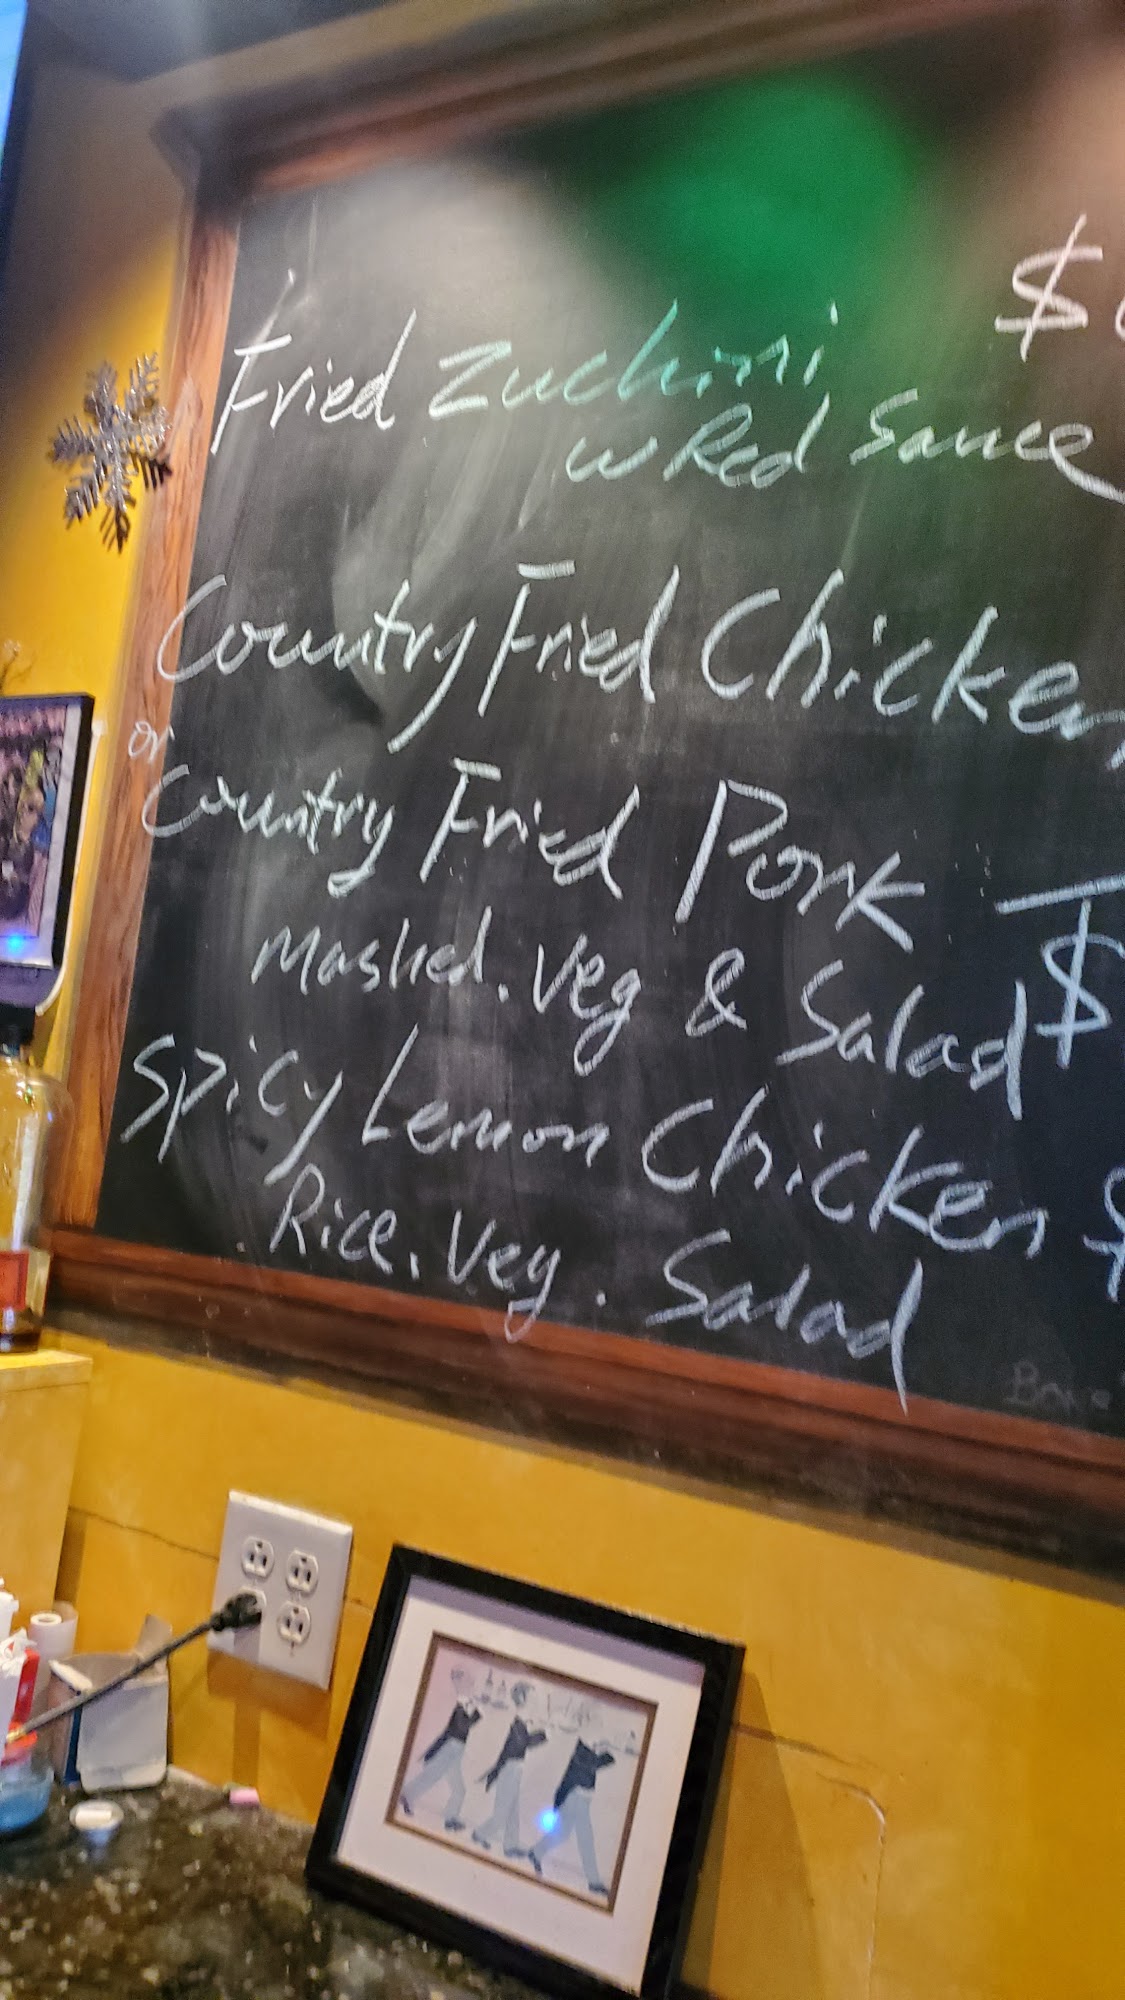 Fried Zuchini $
w Red Sauce
Country Fried Chicken
or
Country Fried Pork
Mashed. Veg & Salad $
Spicy Lemon Chicken $
Rice. Veg. Salad